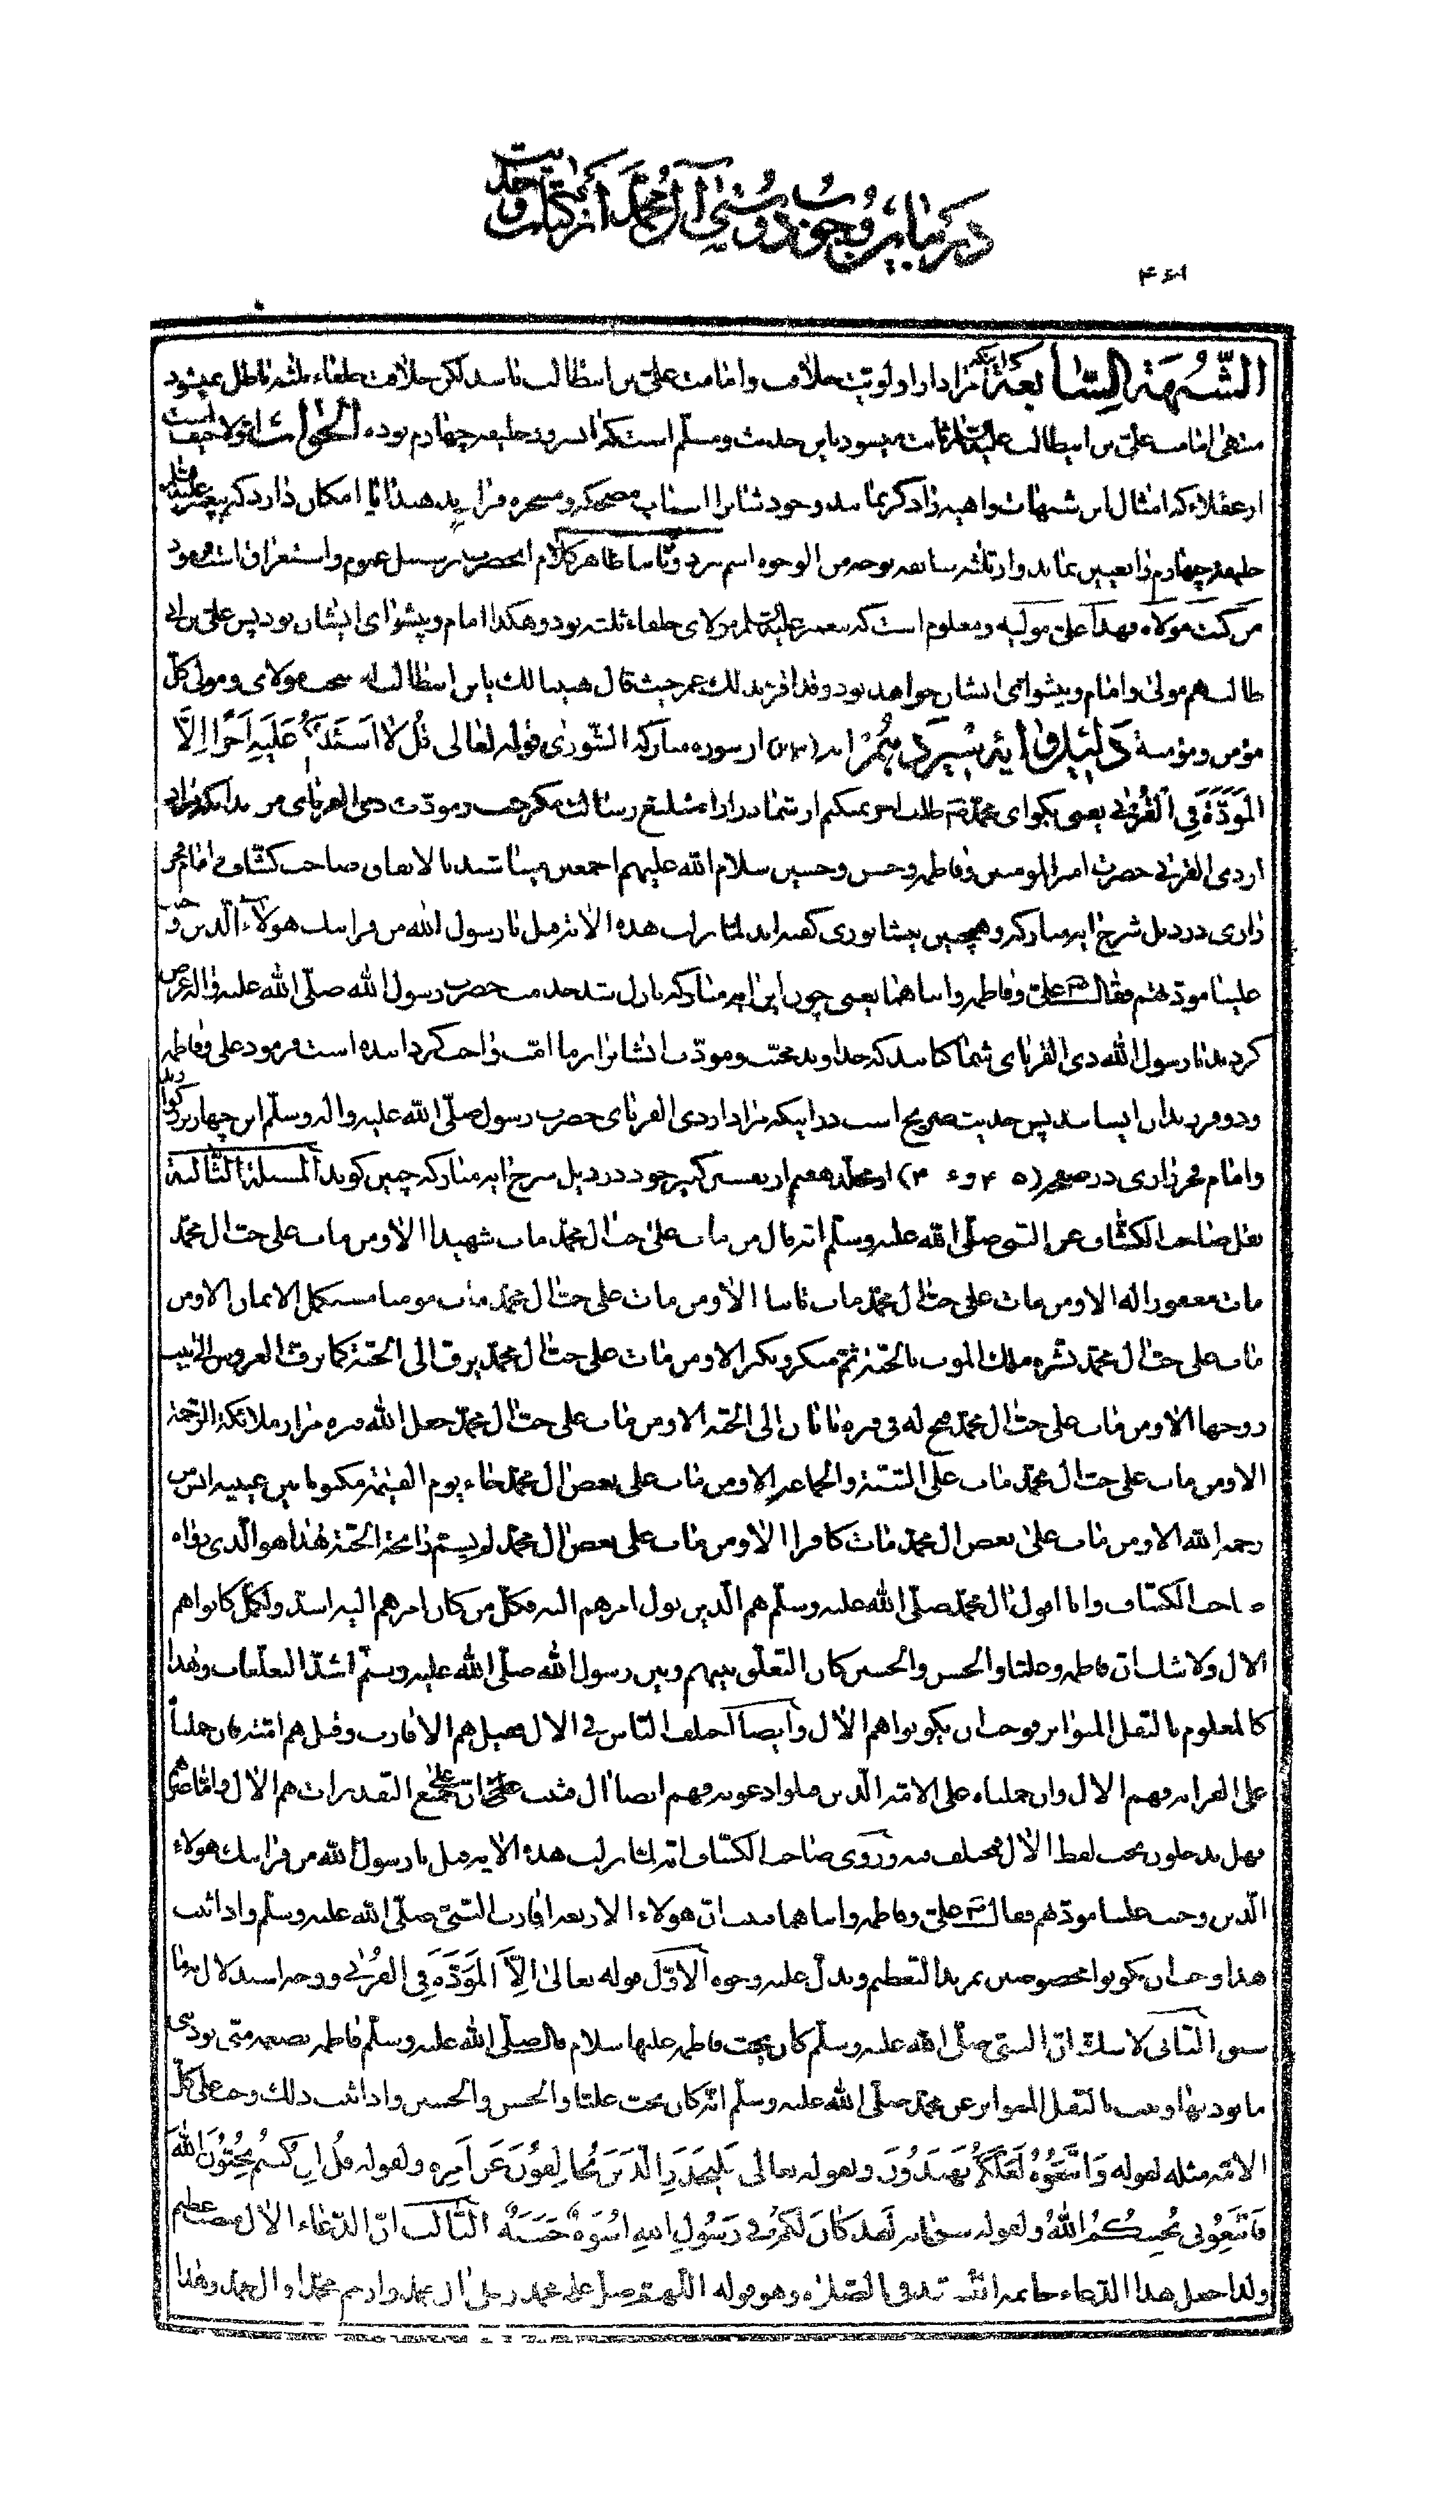 در بیان وجوب دوستی آل محمد از کتاب و حدیث
۴۶۱
الشّبهة السّابعة اینکه مراد از اولویّت خلافت و امامت علیّ بن ابیطالب باشد لکن خلافت خلفاء ثلثه باطل نمیشود
منتهی امامت علیّ بن ابیطالب علیه السّلام ثابت میشود باین حدیث و مسلّم است که انسرور خلیفه چهارم بوده الجواب اوّلا حیف است
از عقلاء که امثال این شبهات واهیه را ذکر نمایند و خود شانرا اسباب مضحکه و مسخره قرار بدهند ایا امکان دارد که پیغمبر علیه السّلم
خلیفه چهارم را تعیین نماید و از ثلثه سابقه بوجه من الوجوه اسم نبرد و ثانیا ظاهر کلام انحضرت بر سبیل عموم و استغراق است فرمود
من کنت مولاه فهذا علیّ مولیه و معلوم است که پیغمبر علیه السّلم مولای خلفاء ثلثه بود و هکذا امام و پیشوای ایشان بود پس علیّ بن ابی
طالب هم مولی و امام و پیشوای ایشان خواهد بود و قد اقرّ بذلک عمر حیث قال هنیئا لک یابن ابیطالب اصبحت مولای و مولی کلّ
مؤمن و مؤمنة دلیل و ایه بیست و سیّم از سوره مبارکه الشّوری قوله تعالی قُل لا اَسئَلُکُم عَلَیهِ اَجرًا اِلَّا
المَوَدَّةَ فِی القُربی یعنی بگو ای محمّد ص طلب اجر نمیکنم از شما در ازاء تبلیغ رسالت مگر حبّ و مودّت ذی القربای من بدانکه مراد
از ذی القربی حضرت امیر المومنین و فاطمه و حسن و حسین سلام الله علیهم اجمعین میباشند بالاتفاق صاحب کشّاف و امام فخر
رازی در ذیل شرح ایه مبارکه و همچنین نیشابوری گفته اند لمّا نزلت هذه الایة قیل یا رسول الله من قرابتک هولاء الّذین وجبت
علینا مودّتهم فقال ص علیّ و فاطمه و ابناهما یعنی چون این ایه مبارکه نازل شد خدمت حضرت رسول الله صلّی الله علیه و اله عرض
کردند یا رسول الله ذی القربای شما کیانند که خداوند محبّت و مودّت ایشانرا بر ما امّت واجب گردانیده است فرمود علی و فاطمه
و دو فرزندان ایشانند پس حدیث صریح است در اینکه مراد از ذی القربای حضرت رسول صلّی الله علیه و اله و سلّم این چهار بزرگوارند
و امام فخر رازی در صفحه از مجلّد هفتم از تفسیر کبیر خود در ذیل شرح ایه مبارکه چنین گوید المسئلة الثّالثة
نقل صاحب الکشّاف عن النّبی صلّی الله علیه و سلّم انّه قال من مات علی حبّ ال محمّد مات شهیدا الا و من مات علی حبّ ال محمّد
مات مغفورا له الا و من مات علی حبّ ال محمّد مات تائبا الا و من مات علی حبّ ال محمّد مات مومنا مستکمل الایمان الا و من
مات علی حبّ ال محمّد بشّره ملک الموت بالجنّة ثمّ منکر و نکیر الا و من مات علی حبّ ال محمّد یزفّ الی الجنّة کما تزفّ العروس الی بیت
زوجها الا و من مات علی حبّ ال محمّد فتح له فی قبره بابان الی الجنّه الا و من مات علی حبّ ال محمّد جعل الله قبره مزار ملائکة الرّحمة
الا و من مات علی حبّ ال محمّد مات علی السّنّة و الجماعه الا و من مات علی بغض ال محمّد جاء یوم القیمة مکتوبا بین عینیه ایس من
رحمة الله الا و من مات علی بغض ال محمّد مات کافرا الا و من مات علی بغض ال محمّد لم یشمّ رائحة الجنّة هذا هو الّذی رواه
صاحب الکشّاف و انا اقول ال محمّد صلّی الله علیه و سلّم هم الّذین یول امرهم الیه فکلّ من کان امرهم الیه اشدّ و اکمل کانوا هم
الال و لا شکّ انّ فاطمه و علیّا و الحسن و الحسین کان التعلّق بینهم و بین رسول الله صلّی الله علیه و سلّم اشدّ التعلّقات و هذا
کالمعلوم بالنقل المتواتر فوجب ان یکونوا هم الال و ایضا اختلف النّاس فی الال فقیل هم الاقارب و قیل هم امّته فان حملناه
علی القرابه فهم الال و ان حملناه علی الامّة الّذین قبلوا دعوته فهم ایضا ال فثبت انّ علی جمیع التقدیرات هم الال و امّا غیرهم
فهل یدخلون تحت لفظ الال فمختلف فیه و روی صاحب الکشّاف انّه لمّا نزلت هذه الایه قیل یا رسول الله من قرابتک هولاء
الّذین وجبت علینا مودّتهم فقال ص علیّ و فاطمه و ابناهما فثبت انّ هولاء الاربعه اقارب النّبیّ صلّی الله علیه و سلّم و اذا ثبت
هذا وجب ان یکونوا مخصوصین بمزید التّعظیم و یدلّ علیه وجوه الاوّل قوله تعالی اِلَّا المَوَدَّةَ فِی القُربی و وجه استدلال به ما
سبق الثّانی لا شکّ انّ النّبی صلّی الله علیه و سلّم کان یحبّ فاطمه علیها سلام قال صلّی الله علیه و سلّم فاطمه بضعه منّی یوذینی
ما یوذیها و ثبت بالنّقل المتواتر عن محمّد صلّی الله علیه و سلّم انّه کان یحبّ علیّا و الحسن و الحسین و اذا ثبت ذلک وجب علی کلّ
الامّه مثله لقوله وَ اتَّبِعُوهُ لَعَلَّکُم تَهتَدُونَ و لقوله تعالی فَلیَحذَرِ الَّذینَ یُخالِفُونَ عَن اَمرِهِ و لقوله قُل اِن کُنتُم تُحِبُّونَ اللهَ
فَاتَّبِعُونی یُحبِبکُمُ اللهُ و لقوله سبحانه لَقَد کانَ لَکُم فی رَسُولِ اللهِ اُسوَةٌ حَسَنَةٌ الثّالث انّ الدّعاء الال منصب عظیم
و لذا جعل هذا الدّعاء خاتمه التّشهّد فی الصّلوه و هو قوله اللّهمّ صلّ علی محمد و علی ال محمّد و ارحم محمّدا و ال محمّد و هذا